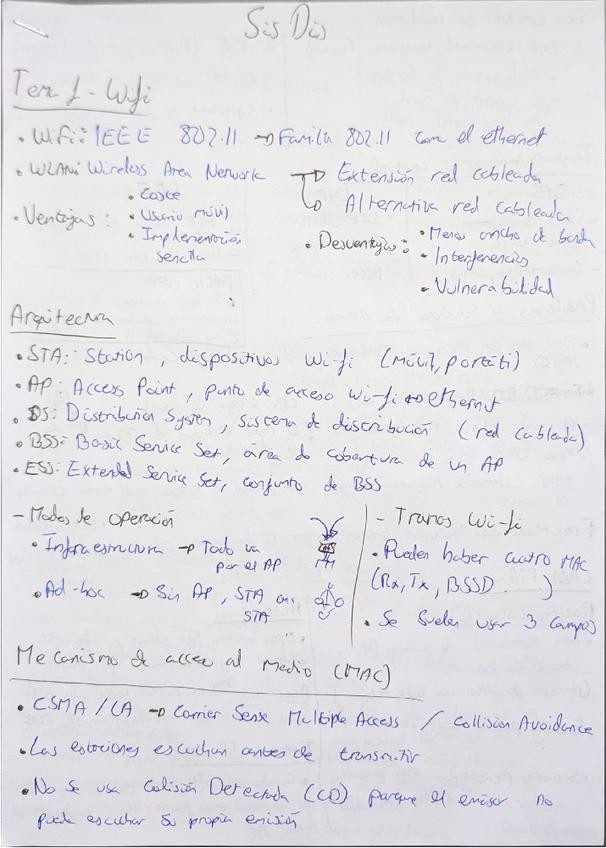 Sis Dis
Tem 1 - Wifi
• Wifi: IEEE 802.11 → Familia 802.11 como el ethernet
• WLAN: Wireless Area Network → Extensión red cableada
→ Alternativa red cableada
• Ventajas: • Coste
• Usuario móvil
• Implementación sencilla
• Desventajas: • Menos ancho de banda
• Interferencias
• Vulnerabilidad
Arquitectura
• STA: Station, dispositivos Wi-fi (móvil, portátil)
• AP: Access Point, punto de acceso Wi-fi ↔ ethernet
• DS: Distribution System, sistema de distribución (red cableada)
• BSS: Basic Service Set, área de cobertura de un AP
• ESS: Extended Service Set, conjunto de BSS
- Modos de operación
• Infraestructura → Todo va
por el AP
• Ad-hoc → Sin AP, STA con
STA
- Tramas Wi-fi
• Pueden haber cuatro MAC
(Rx, Tx, BSSD )
• Se suelen usar 3 campos
Mecanismo de acceso al medio (MAC)
• CSMA/CA → Carrier Sense Multiple Access / Collision Avoidance
• Las estaciones escuchan antes de transmitir
• No se usa Colisión Detectada (CD) porque el emisor no
puede escuchar su propia emisión